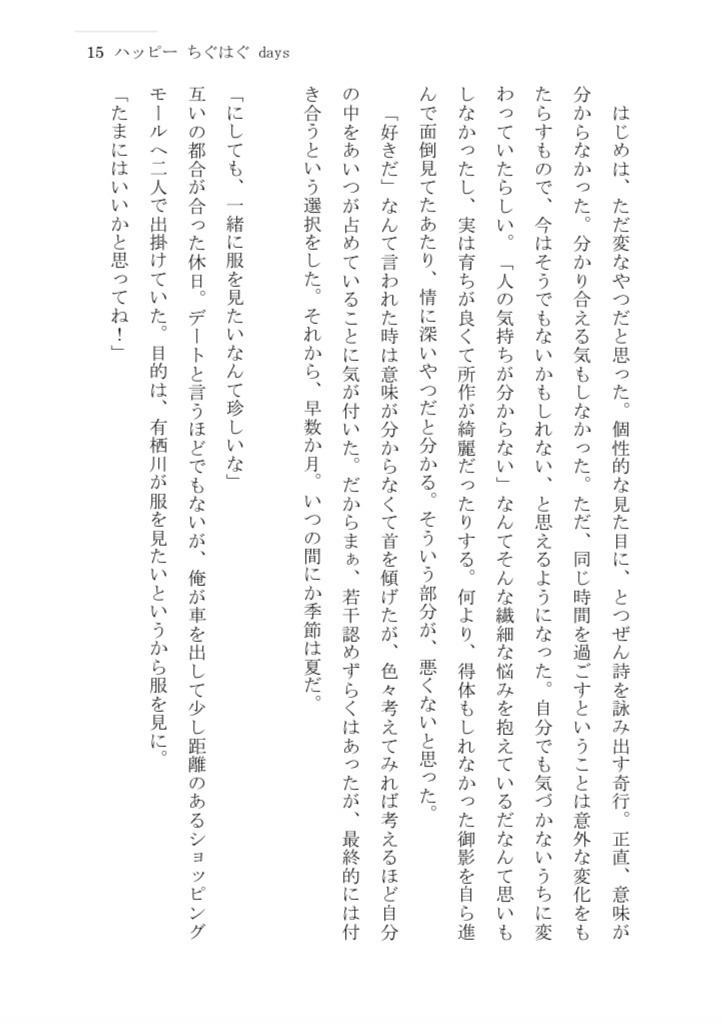 15 ハッピー ちぐはぐ days
はじめは、ただ変なやつだと思った。個性的な見た目に、とつぜん詩を詠み出す奇行。正直、意味が
分からなかった。分かり合える気もしなかった。ただ、同じ時間を過ごすということは意外な変化をも
たらすもので、今はそうでもないかもしれない、と思えるようになった。自分でも気づかないうちに変
わっていたらしい。「人の気持ちが分からない」なんてそんな繊細な悩みを抱えているだなんて思いも
しなかったし、実は育ちが良くて所作が綺麗だったりする。何より、得体もしれなかった御影を自ら進
んで面倒見てたあたり、情に深いやつだと分かる。そういう部分が、悪くないと思った。
「好きだ」なんて言われた時は意味が分からなくて首を傾げたが、色々考えてみれば考えるほど自分
の中をあいつが占めていることに気が付いた。だからまぁ、若干認めずらくはあったが、最終的には付
き合うという選択をした。それから、早数か月。いつの間にか季節は夏だ。
「にしても、一緒に服を見たいなんて珍しいな」
互いの都合が合った休日。デートと言うほどでもないが、俺が車を出して少し距離のあるショッピング
モールへ二人で出掛けていた。目的は、有栖川が服を見たいというから服を見に。
「たまにはいいかと思ってね！」